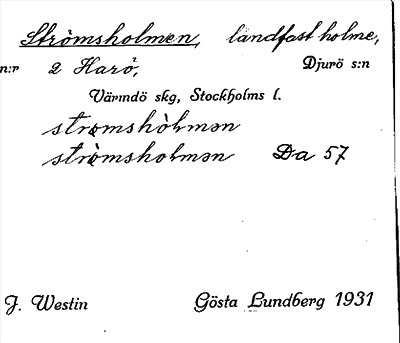 Strömsholmen, landfast holme,
n:r 2 Harö, Djurö s:n
Värmdö skg, Stockholms l.
strømshòlmən
strò̀msholmən Da 57
J. Westin Gösta Lundberg 1931